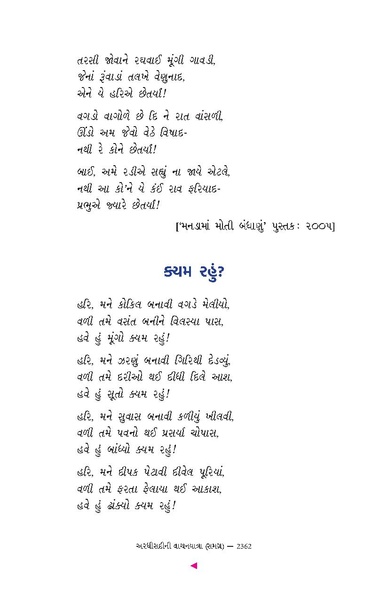 તરસી જોવાને રઘવાઈ મૂંગી ગાવડી,
જેનાં રૂંવાડાં તલખે વેણુનાદ,
એને યે હરિએ છેતર્યાં!
વગડો વાગોળે છે દિ ને રાત વાંસળી,
ઊંડો અમ જેવો વેઠે વિષાદ-
નથી રે કોને છેતર્યાં!
બાઈ, અમે રડીએ સહ્યું ના જાયે એટલે,
નથી આ કો'ને યે કંઈ રાવ ફરિયાદ-
પ્રભુએ જ્યારે છેતર્યાં!
['મનડામાં મોતી બંધાણું' પુસ્તક: ૨૦૦૫]
ક્યમ રહું?
હરિ, મને કોકિલ બનાવી વગડે મેલીયો,
વળી તમે વસંત બનીને વિલસ્યા પાસ,
હવે હું મૂંગો ક્યમ રહું!
હરિ, મને ઝરણું બનાવી ગિરિથી દેડવ્યું,
વળી તમે દરીઓ થઈ દીધી દિલે આશ,
હવે હું સૂતો ક્યમ રહું!
હરિ, મને સુવાસ બનાવી કળીયું ખીલવી,
વળી તમે પવનો થઈ પ્રસર્યા ચોપાસ,
હવે હું બાંધ્યો ક્યમ રહું!
હરિ, મને દીપક પેટાવી દીવેલ પૂરિયાં,
વળી તમે ફરતા ફેલાયા થઈ આકાશ,
હવે હું ઢાંક્યો ક્યમ રહું!
અરધીસદીની વાચનયાત્રા (સમગ્ર) — 2362